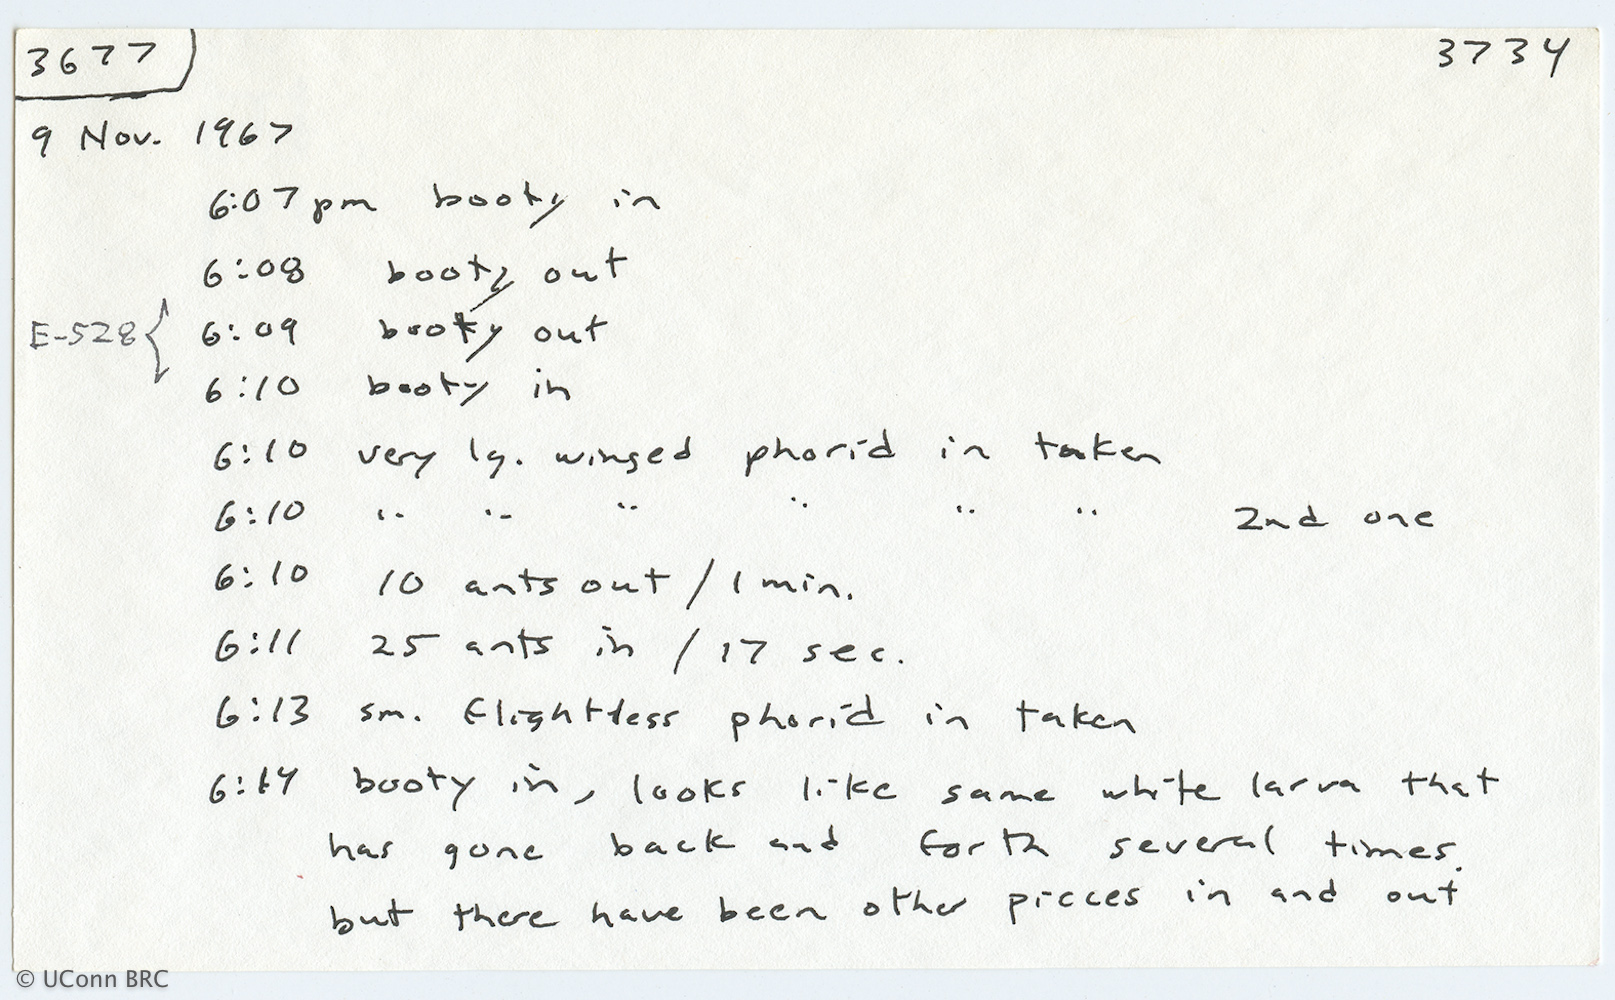 3677 3734
9 Nov. 1967
6:07 pm booty in
6:08 booty out
E-528 { 6:09 booty out
6:10 booty in
6:10 very lg. winged phorid in taken
6:10 " " " " " " 2nd one
6:10 10 ants out / 1 min.
6:11 25 ants in / 17 sec.
6:13 sm. flightless phorid in taken
6:14 booty in, looks like same white larva that
has gone back and forth several times.
but there have been other pieces in and out
© UConn BRC